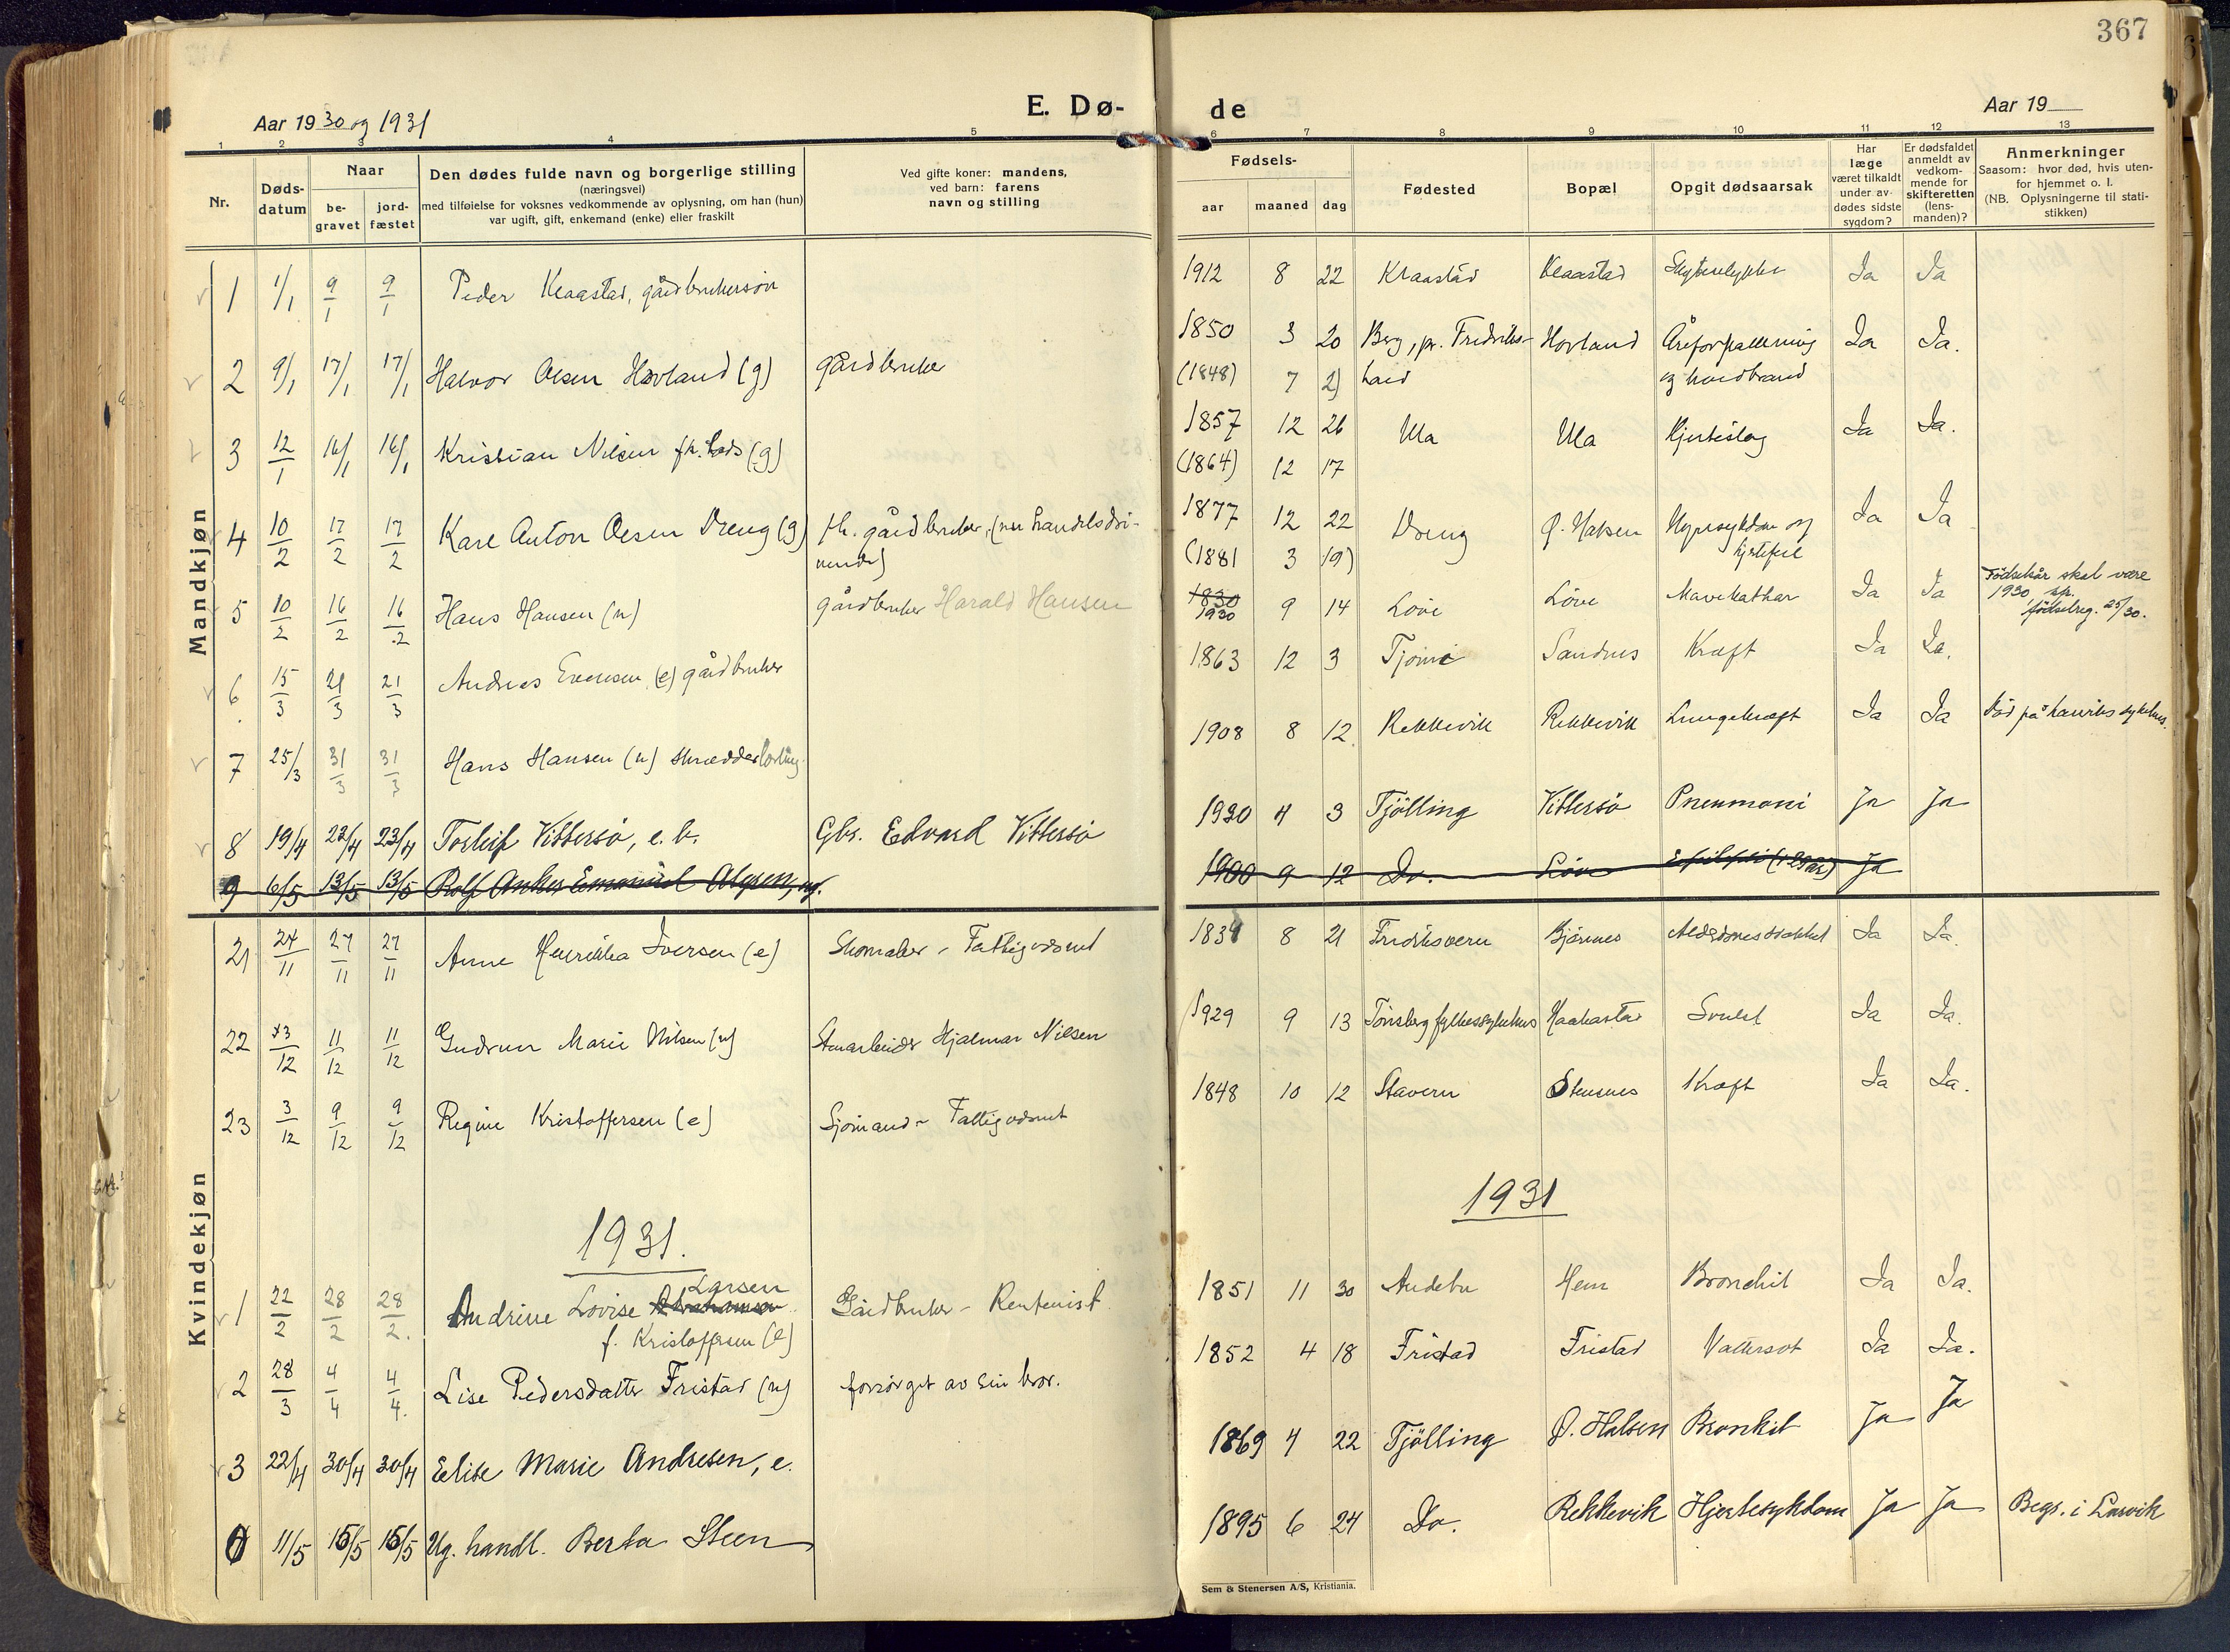 367
Aar 1930 og 1931
E. Dø-
de
Aar 19
1 2 3 4 5 6 7 8 9 10 11 12 13
Nr.
Døds-
datum
Naar
be-
gravet
jord-
fæstet
Den dødes fulde navn og borgerlige stilling
(næringsvei)
med tilføielse for voksnes vedkommende av oplysning, om han (hun)
var ugift, gift, enkemand (enke) eller fraskilt
Ved gifte koner: mandens,
ved barn: farens
navn og stilling
Fødsels-
aar maaned dag
Fødested
Bopæl
Opgit dødsaarsak
Har
læge
været tilkaldt
under av-
dødes sidste
sygdom?
Er dødsfaldet
anmeldt av
vedkom-
mende for
skifteretten
(lens-
manden)?
Anmerkninger
Saasom: hvor død, hvis uten-
for hjemmet o. l.
(NB. Oplysningerne til stati-
stikken)
Mandkjøn
1 1/1 9/1 9/1 Peder Klaastad, gårdbrukersøn 1912 8 22 Klaastad Klaastad Ja Ja
2 9/1 17/1 17/1 Halvor Olsen Hovland (g) gårdbruker 1850 3 20 Berg, pr. Fredriks- Hovland Åreforkalkning Ja Ja.
(1848) 7 2) hald og koldbrand
3 12/1 16/1 16/1 Kristian Nilsen fh. lods (g) 1857 12 26 Ula Ula Hjerteslag Ja Ja.
(1864) 12 17
4 10/2 17/2 17/2 Karl Anton Olsen Vreng (g) fh. gårdbruker, (nu handelsdri- 1877 12 22 Vreng Ø. Halsen Nyresykdom og Ja Ja
vende) (1881 3 19) hjertefeil
5 10/2 16/2 16/2 Hans Hansen (u) gårdbruker Harald Hansen 1830 1930 9 14 Løve Løve Mavekathar Ja Ja Fødselsår skal være
1930 sp.
fødselreg. 25/30.
6 15/3 21/3 21/3 Andreas Evensen (e) gårdbruker 1863 12 3 Tjøme Sandnes Kræft Ja Ja.
7 25/3 31/3 31/3 Hans Hansen (u) skrædderlærling 1908 8 12 Rekkevik Rekkevik Lungekræft Ja Ja Død på Larviks sykehus.
8 19/4 23/4 23/4 Torleif Vittersø, e. b. Gbr. Edvard Vittersø 1930 4 3 Tjølling Vittersø Pneumoni Ja Ja
9 6/5 13/5 13/5 Rolf Anker Emanuel 1900 9 12 Do. Løve Ja
Kvindekjøn
21 24/11 27/11 27/11 Anne Henrikka Iversen (e) Skomaker - Fattigunderst 1834 8 21 Fredriksvern Bjønnes Alderdomssvakhet Ja Ja.
22 3/12 11/12 11/12 Gudrun Marie Nilsen (u) Stenarbeider Hjalmar Nilsen 1929 9 13 Tønsberg fylkessykehus Haakastad Svulst Ja Ja.
23 3/12 9/12 9/12 Regine Kristoffersen (e) Sjømand - Fattigunderst 1848 10 12 Stavern Stensnes Kræft Ja Ja.
1931.
1931
Larsen
1 22/2 28/2 28/2. Andrine Lovise Abrahamsen Gårdbruker - Rentenist 1851 11 30 Andebu Hem Bronchit Ja Ja.
f. Kristoffersen (e)
2 28/3 4/4 4/4. Lise Pedersdatter Fristad (u) forsørget av sin bror. 1852 4 18 Fristad Fristad Vattersot Ja Ja.
3 22/4 30/4 30/4 Elise Marie Andresen, e. 1869 4 22 Tjølling Ø. Halsen Bronkit Ja Ja
11/5 15/5 15/5 Ug. handl. Berta Steen 1895 6 24 Do. Rekkevik Hjertesykdom Ja Ja Begr. i Larvik
Sem & Stenersen A/S, Kristiania.